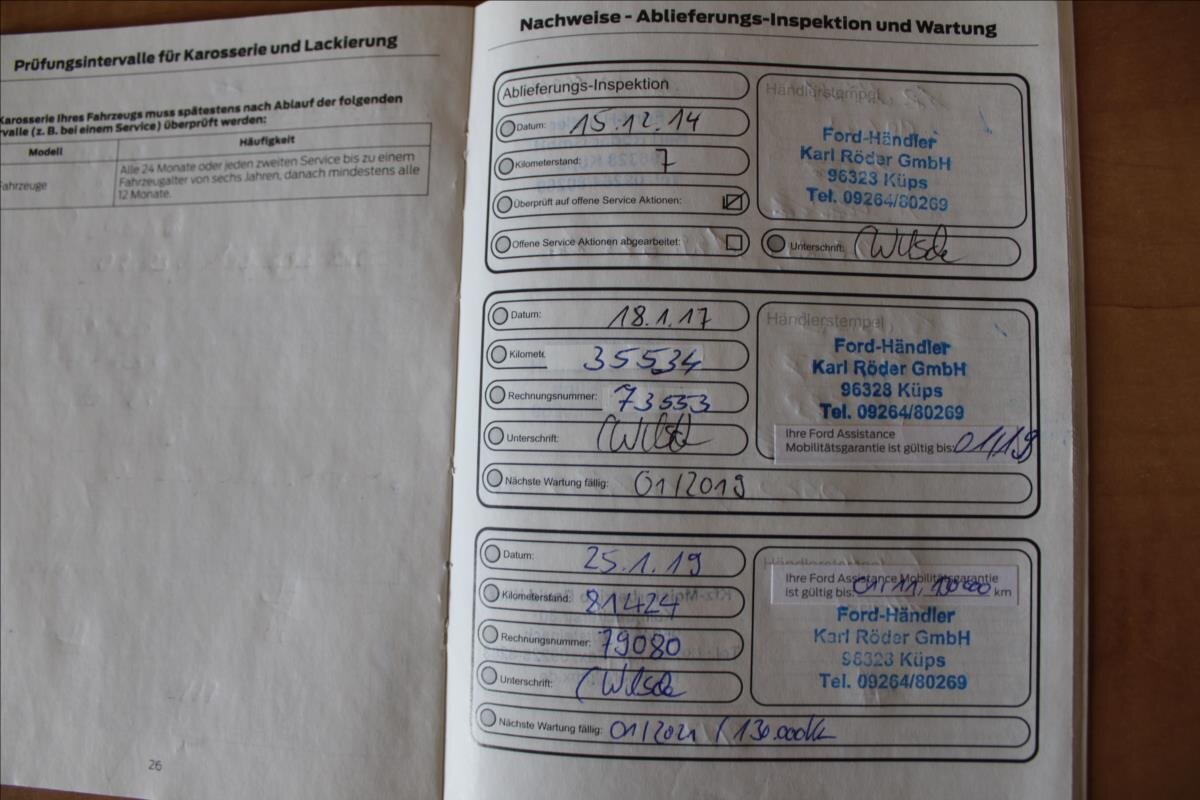 Prüfungsintervalle für Karosserie und Lackierung
Karosserie Ihres Fahrzeugs muss spätestens nach Ablauf der folgenden
rvalle (z. B. bei einem Service) überprüft werden:
Modell
Häufigkeit
Fahrzeuge
Alle 24 Monate oder jeden zweiten Service bis zu einem
Fahrzeugalter von sechs Jahren, danach mindestens alle
12 Monate.
26
Nachweise - Ablieferungs-Inspektion und Wartung
Ablieferungs-Inspektion
Datum: 15.12.14
Kilometerstand: 7
Überprüft auf offene Service Aktionen:
Offene Service Aktionen abgearbeitet:
Händlerstempel
Ford-Händler
Karl Röder GmbH
96328 Küps
Tel. 09264/80269
Unterschrift:
Datum: 18.1.17
Kilomete 35534
Rechnungsnummer: 73553
Unterschrift:
Händlerstempel
Ford-Händler
Karl Röder GmbH
96328 Küps
Tel. 09264/80269
Ihre Ford Assistance
Mobilitätsgarantie ist gültig bis: 01/19
Nächste Wartung fällig: 01/2019
Datum: 25.1.19
Kilometerstand: 81424
Rechnungsnummer: 79080
Unterschrift:
Händlerstempel
Ihre Ford Assistance Mobilitätsgarantie
ist gültig bis: km
Ford-Händler
Karl Röder GmbH
96328 Küps
Tel. 09264/80269
Nächste Wartung fällig: 01/2021 / 130.000